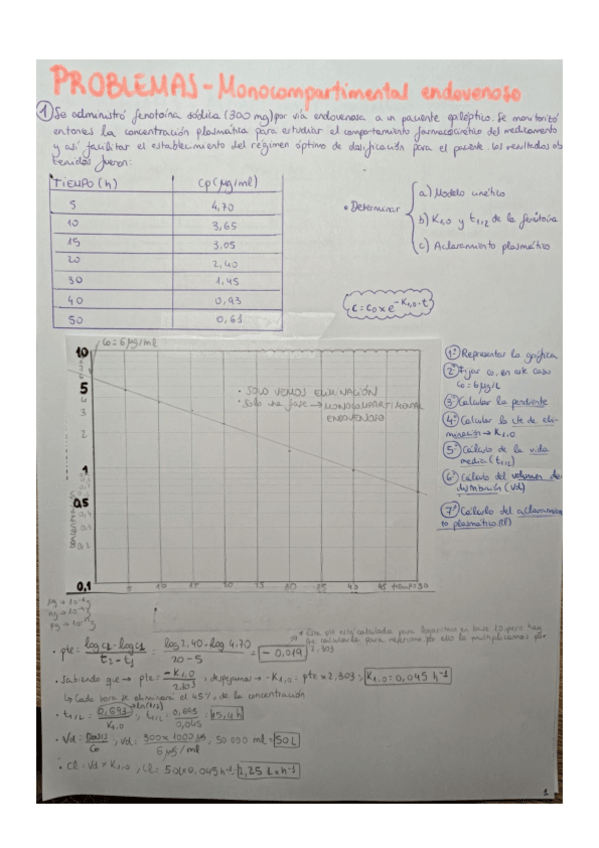 PROBLEMAS - Monocompartimental endovenoso
1 Se administró fenotoína sódica (300 mg) por vía endovenosa a un paciente epiléptico. Se monitorizó
entonces la concentración plasmática para estudiar el comportamiento farmacocinético del medicamento
y así facilitar el establecimiento del régimen óptimo de dosificación para el paciente. Los resultados ob
tenidos fueron:
TIEMPO (h) Cp (µg/ml)
5 4,70
10 3,65
15 3,05
20 2,40
30 1,45
40 0,93
50 0,63
• Determinar
a) Modelo cinético
b) K1,0 y t1/2 de la fenitoína
c) Aclaramiento plasmático
C = C0 x e^-K1,0·t
C0 = 6 µg/ml
10
5
4
3
2
1
0.5
0,1
• SOLO VEMOS ELIMINACIÓN
• Solo una fase → MONOCOMPARTIMENTAL
ENDOVENOSO
5 10 15 20 25 30 35 40 45 50
1º Representar la gráfica
2º Fijar C0, en este caso
C0 = 6 µg/L
3º Calcular la pendiente
4º Calcular la cte de eli-
minación → K1,0
5º Cálculo de la vida
media (t1/2)
6º Cálculo del volumen de
distribución (Vd)
7º Cálculo del aclaramien
to plasmático (Cl)
• pte = log c2 - log c1 / t2 - t1 = log 2,40 - log 4,70 / 20 - 5 = - 0,019
* Esta pte está calculada para logaritmos en base 10, pero hay
que calcularla para neperiano por ello la multiplicamos por
2,303
• Sabiendo que → pte = -K1,0 / 2,303; despejamos → -K1,0 = pte x 2,303; K1,0 = 0,045 h⁻¹
↳ Cada hora se eliminará el 45% de la concentración
• t1/2 = 0,693 / K1,0; t1/2 = 0,693 / 0,045 = 15,4 h
• Vd = Dosis / C0; Vd = 300 x 1000 µg / 6 µg/ml; 50 000 ml = 50 L
• Cl = Vd x K1,0; Cl = 50L x 0,045 h⁻¹ = 2,25 L x h⁻¹
1